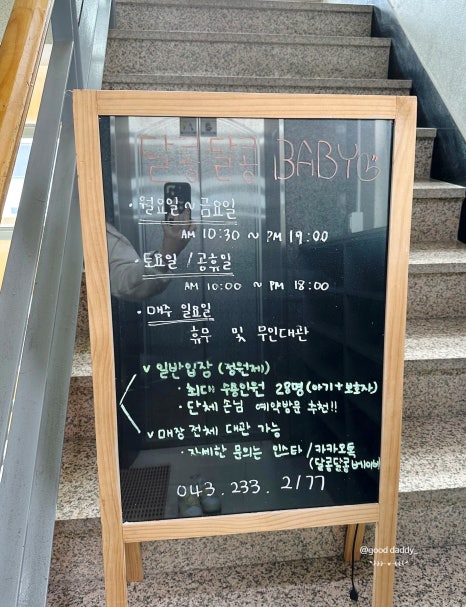 달콩달콩 BABY
· 월요일 ~ 금요일
AM 10:30 ~ PM 19:00
· 토요일 / 공휴일
AM 10:00 ~ PM 18:00
· 매주 일요일
휴무 및 무인대관
v 일반입장 (정원제)
· 최대 수용인원 28명 (아기+보호자)
· 단체 손님 예약방문 추천!!
v 매장 전체 대관 가능
· 자세한 문의는 인스타 / 카카오톡
(달콩달콩베이비)
043. 233. 2177
@good daddy_